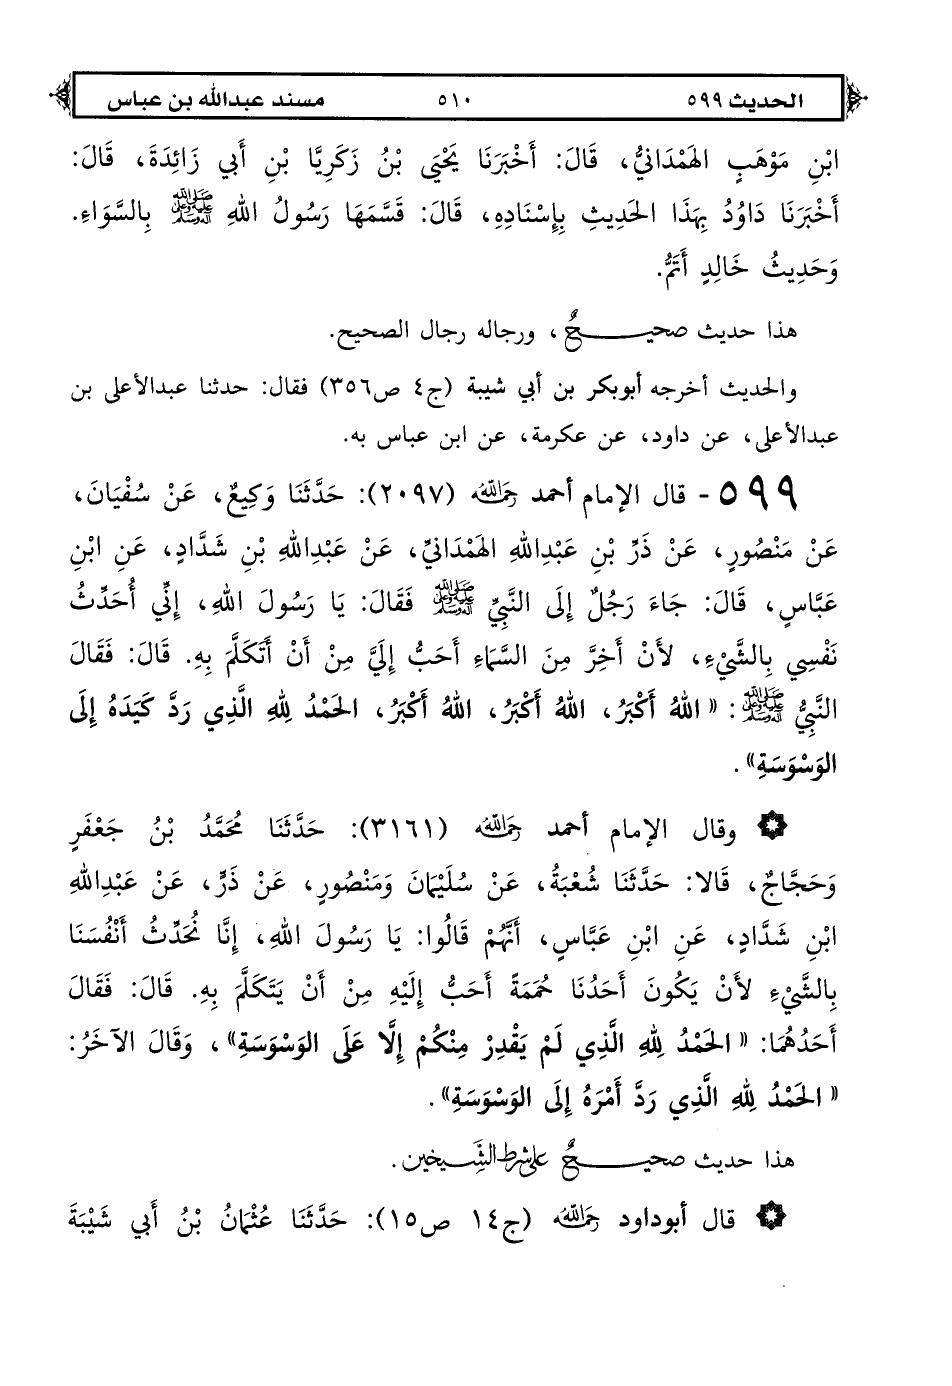 الحديث ٥٩٩ ٥١٠ مسند عبدالله بن عباس
ابْنِ مَوْهَبٍ الهَمْدَانيُّ، قَالَ: أَخْبَرَنَا يَحْيَى بْنُ زَكَرِيَّا بْنِ أَبي زَائِدَةَ، قَالَ:
أَخْبَرَنَا دَاوُدُ بِهَذَا الحَدِيثِ بِإِسْنَادِهِ، قَالَ: قَسَّمَهَا رَسُولُ اللهِ ﷺ بِالسَّوَاءِ.
وَحَدِيثُ خَالِدٍ أَتَمُّ.
هذا حديث صحيحٌ، ورجاله رجال الصحيح.
والحديث أخرجه أبوبكر بن أبي شيبة (ج٤ ص٣٥٦) فقال: حدثنا عبدالأعلى بن
عبدالأعلى، عن داود، عن عكرمة، عن ابن عباس به.
٥٩٩- قال الإمام أحمد رَحِمَهُ اللهُ (٢٠٩٧): حَدَّثَنَا وَكِيعٌ، عَنْ سُفْيَانَ،
عَنْ مَنْصُورٍ، عَنْ ذَرِّ بْنِ عَبْدِاللهِ الهَمْدَانيِّ، عَنْ عَبْدِاللهِ بْنِ شَدَّادٍ، عَنِ ابْنِ
عَبَّاسٍ، قَالَ: جَاءَ رَجُلٌ إِلَى النَّبِيِّ ﷺ فَقَالَ: يَا رَسُولَ اللهِ، إِنِّي أُحَدِّثُ
نَفْسِي بِالشَّيْءِ، لَأَنْ أَخِرَّ مِنَ السَّمَاءِ أَحَبُّ إِلَيَّ مِنْ أَنْ أَتَكَلَّمَ بِهِ. قَالَ: فَقَالَ
النَّبِيُّ ﷺ: «اللهُ أَكْبَرُ، اللهُ أَكْبَرُ، اللهُ أَكْبَرُ، الحَمْدُ لِلهِ الَّذِي رَدَّ كَيْدَهُ إِلَى
الوَسْوَسَةِ».
وقال الإمام أحمد رَحِمَهُ اللهُ (٣١٦١): حَدَّثَنَا مُحَمَّدُ بْنُ جَعْفَرٍ
وَحَجَّاجٌ، قَالا: حَدَّثَنَا شُعْبَةُ، عَنْ سُلَيْمَانَ وَمَنْصُورٍ، عَنْ ذَرٍّ، عَنْ عَبْدِاللهِ
ابْنِ شَدَّادٍ، عَنِ ابْنِ عَبَّاسٍ، أَنَّهُمْ قَالُوا: يَا رَسُولَ اللهِ، إِنَّا نُحَدِّثُ أَنْفُسَنَا
بِالشَّيْءِ لَأَنْ يَكُونَ أَحَدُنَا حُمَمَةً أَحَبُّ إِلَيْهِ مِنْ أَنْ يَتَكَلَّمَ بِهِ. قَالَ: فَقَالَ
أَحَدُهُمَا: «الحَمْدُ لِلهِ الَّذِي لَمْ يَقْدِرْ مِنْكُمْ إِلَّا عَلَى الوَسْوَسَةِ»، وَقَالَ الآخَرُ:
«الحَمْدُ لِلهِ الَّذِي رَدَّ أَمْرَهُ إِلَى الوَسْوَسَةِ».
هذا حديث صحيحٌ على شرط الشَّيخين.
قال أبوداود رَحِمَهُ اللهُ (ج١٤ ص١٥): حَدَّثَنَا عُثْمَانُ بْنُ أَبي شَيْبَةَ